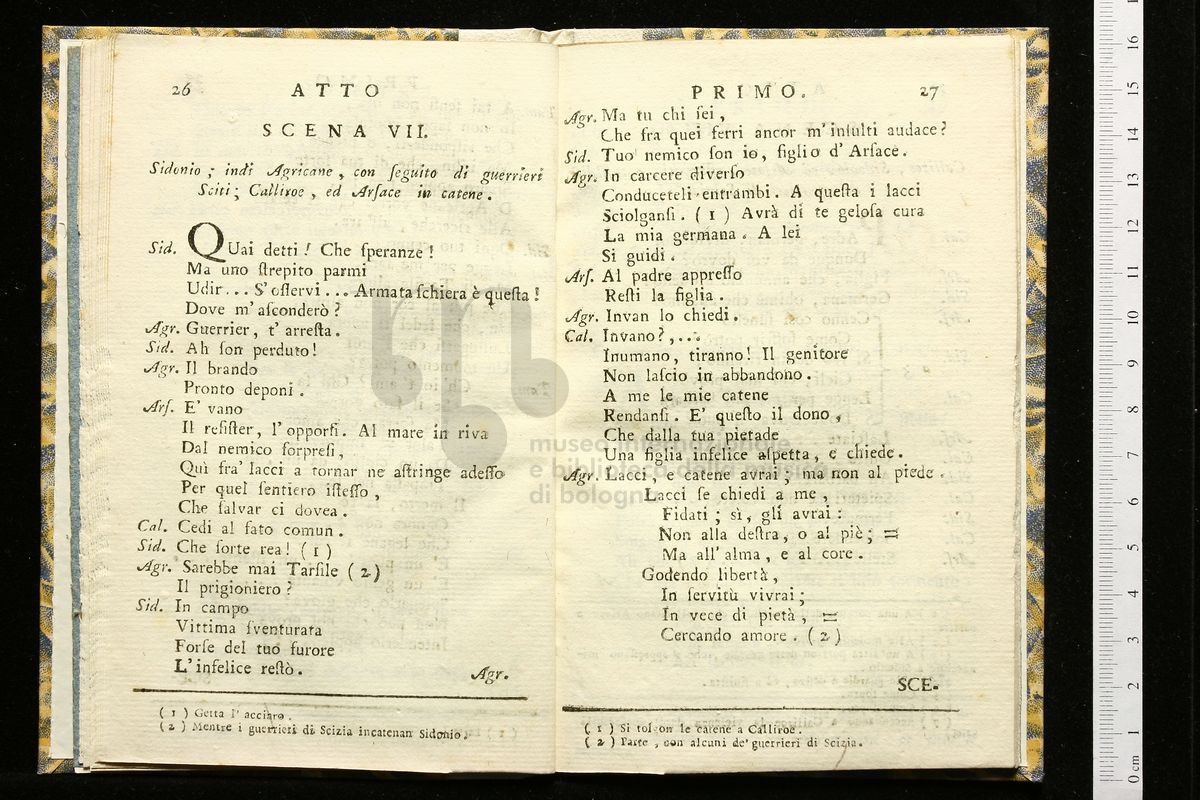 26 ATTO
SCENA VII.
Sidonio ; indi Agricane , con ſeguito di guerrieri
Sciti ; Calliroe , ed Arſace in catene .
Sid. QUai detti ! Che ſperanze !
Ma uno ſtrepito parmi
Udir ... S'oſſervi ... Armata ſchiera è queſta !
Dove m'aſconderò ?
Agr. Guerrier, t'arreſta .
Sid. Ah ſon perduto !
Agr. Il brando
Pronto deponi .
Arſ. E' vano
Il reſiſter, l'opporſi . Al mare in riva
Dal nemico ſorpreſi ,
Quì fra' lacci a tornar ne aſtringe adeſſo
Per quel ſentiero iſteſſo ,
Che ſalvar ci dovea .
Cal. Cedi al fato comun .
Sid. Che ſorte rea ! ( 1 )
Agr. Sarebbe mai Tarſile ( 2 )
Il prigioniero ?
Sid. In campo
Vittima ſventurata
Forſe del tuo furore
L'infelice reſtò .
Agr.
( 1 ) Getta l'acciaro .
( 2 ) Mentre i guerrieri di Scizia incatenan Sidonio .
PRIMO. 27
Agr. Ma tu chi ſei ,
Che fra quei ferri ancor m'inſulti audace ?
Sid. Tuo nemico ſon io , figlio d'Arſace .
Agr. In carcere diverſo
Conduceteli entrambi . A queſta i lacci
Sciolganſi . ( 1 ) Avrà di te geloſa cura
La mia germana . A lei
Si guidi .
Arſ. Al padre appreſſo
Reſti la figlia .
Agr. Invan lo chiedi .
Cal. Invano ? , ...
Inumano, tiranno ! Il genitore
Non laſcio in abbandono .
A me le mie catene
Rendanſi . E' queſto il dono ,
Che dalla tua pietade
Una figlia infelice aſpetta , e chiede .
Agr. Lacci , e catene avrai ; ma non al piede .
Lacci ſe chiedi a me ,
Fidati ; sì , gli avrai :
Non alla deſtra, o al piè ; =
Ma all'alma , e al core .
Godendo libertà ,
In ſervitù vivrai ;
In vece di pietà , =
Cercando amore . ( 2 )
SCE-
( 1 ) Si tolgon le catene a Calliroe .
( 2 ) Parte , con alcuni de' guerrieri di Scizia .
museo internazionale
e biblioteca della musica
di bologna
0 cm 1 2 3 4 5 6 7 8 9 10 11 12 13 14 15 16